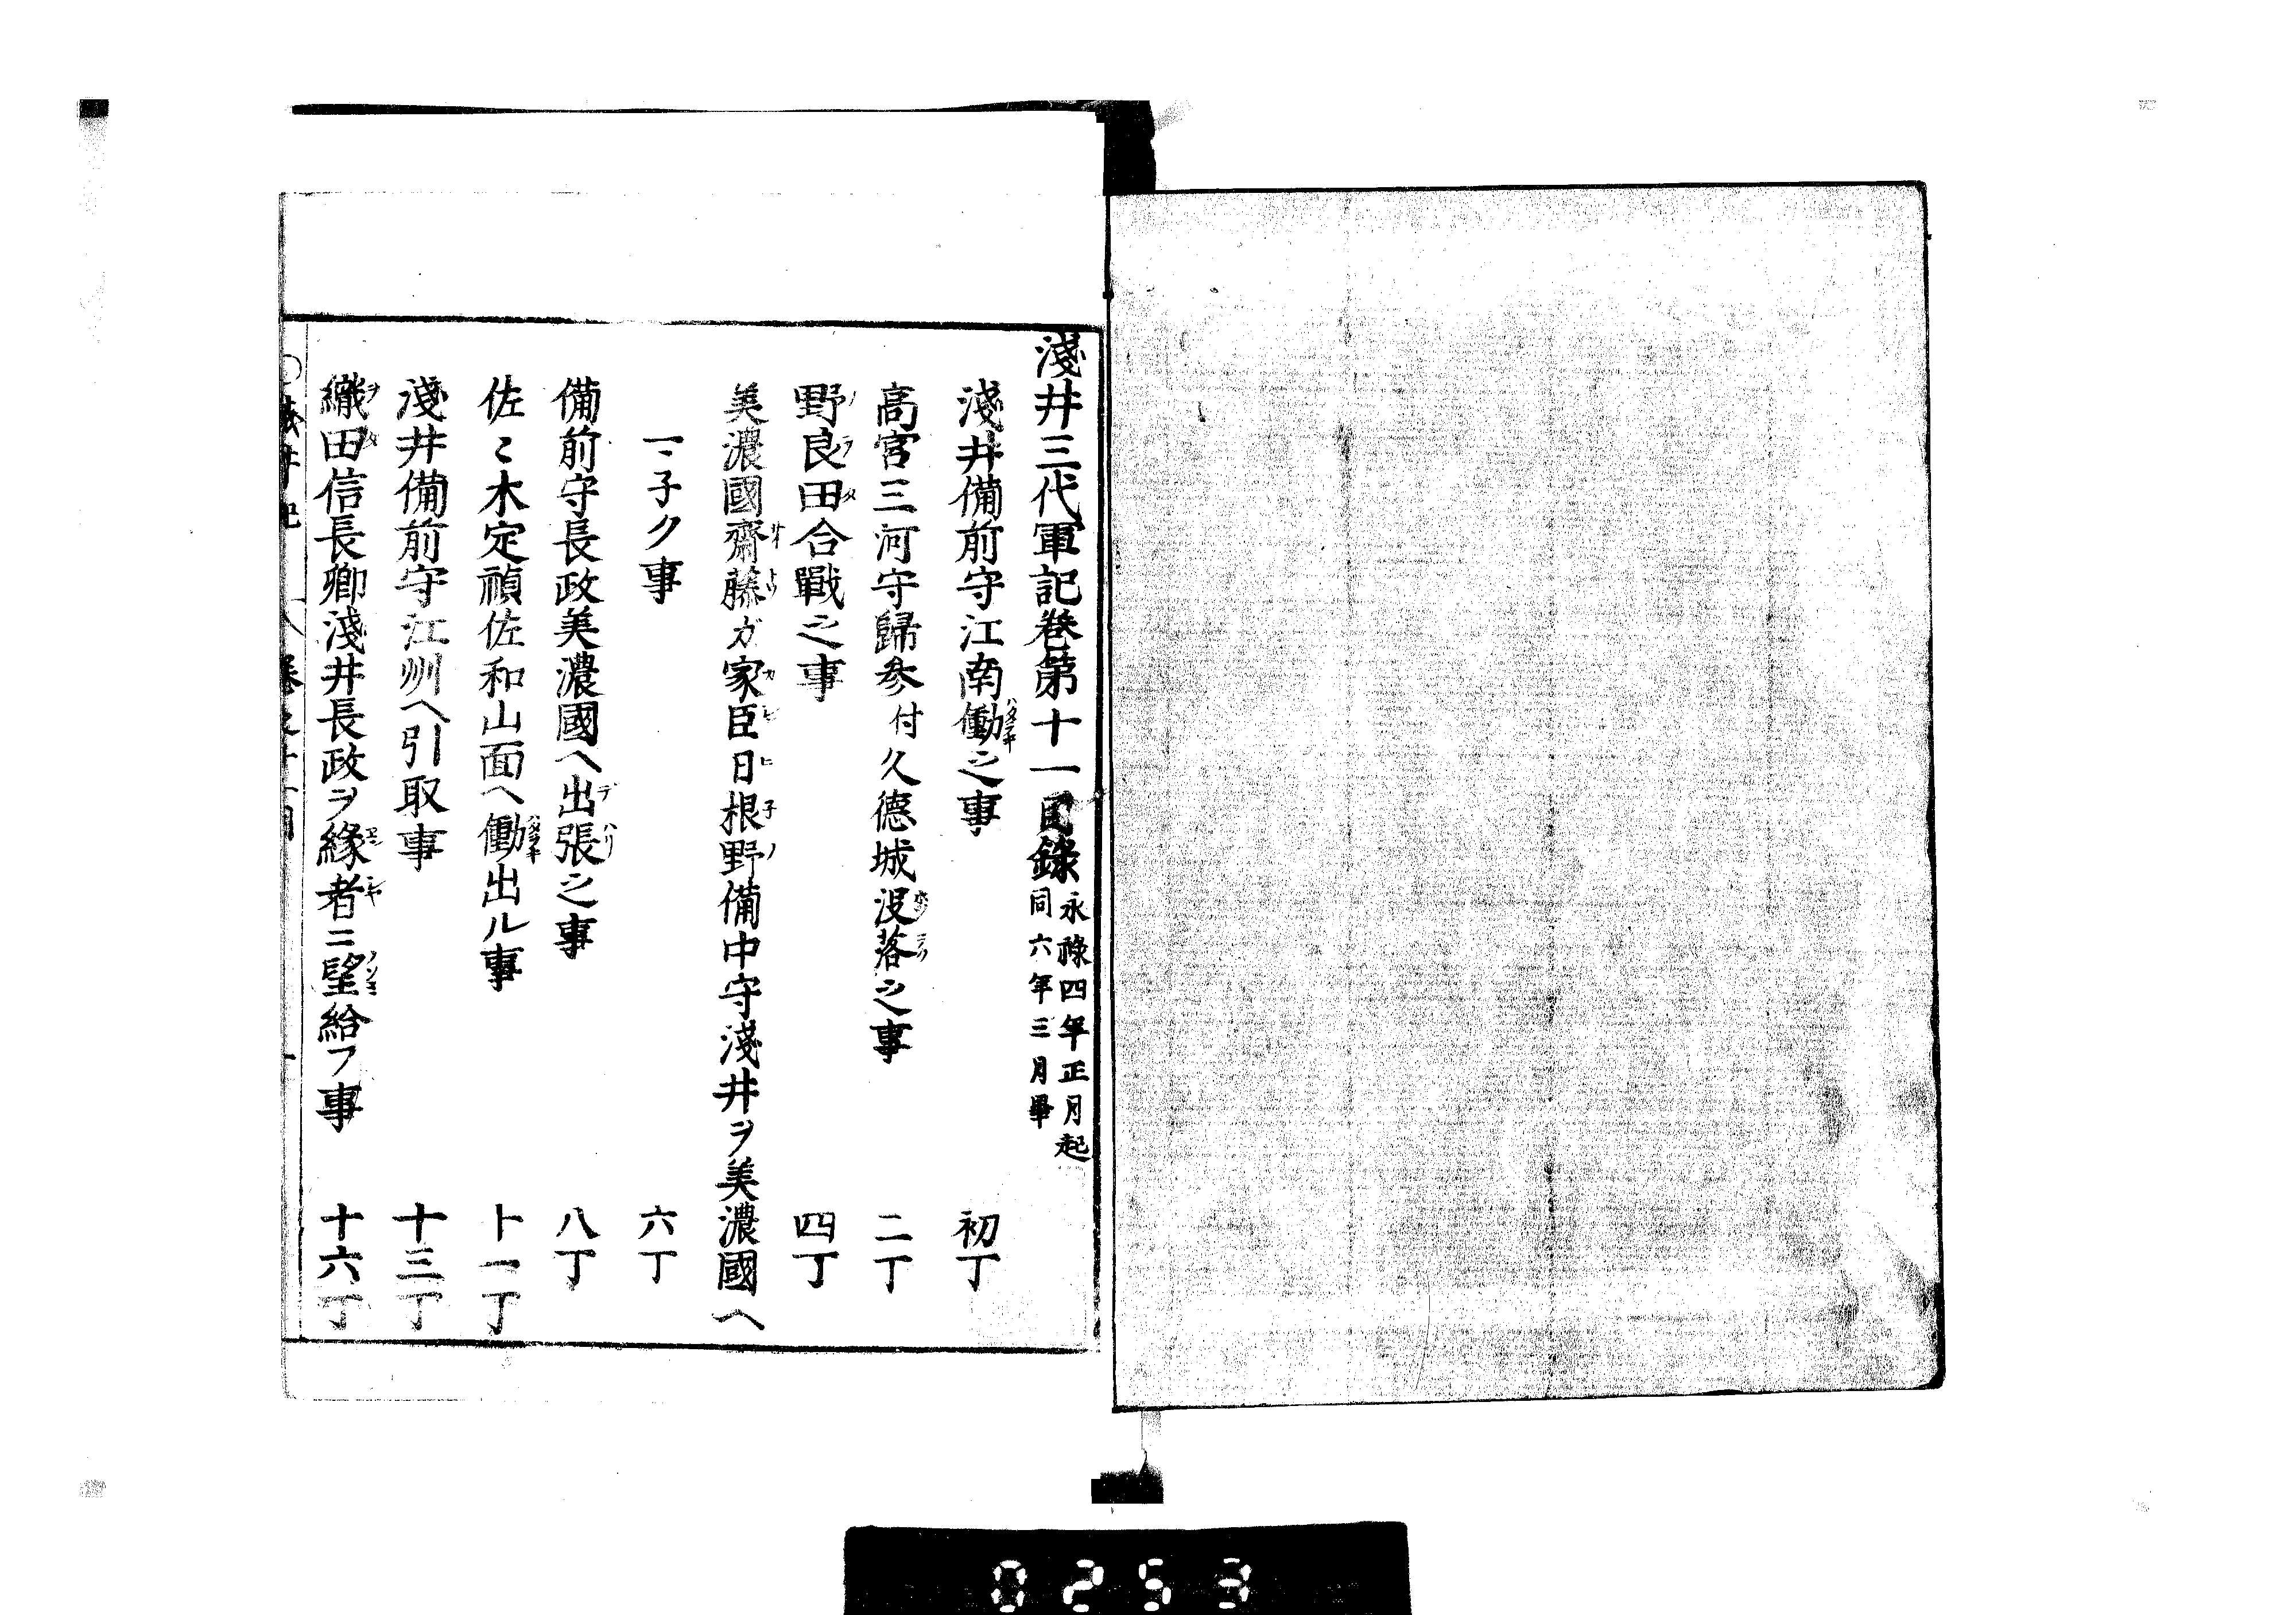 淺井三代軍記卷第十一目錄 永祿四年正月起 同六年三月畢
淺井備前守江南働之事 初丁
高宮三河守歸參付久德城沒落之事 二丁
野良田合戰之事 四丁
美濃國齋藤ガ家臣日根野備中守淺井ヲ美濃國ヘ
子ク事 六丁
備前守長政美濃國ヘ出張之事 八丁
佐〻木定禎佐和山面ヘ働出ル事 十一丁
淺井備前守江州ヘ引取事 十三丁
織田信長卿淺井長政ヲ緣者ニ望給フ事 十六丁
0253